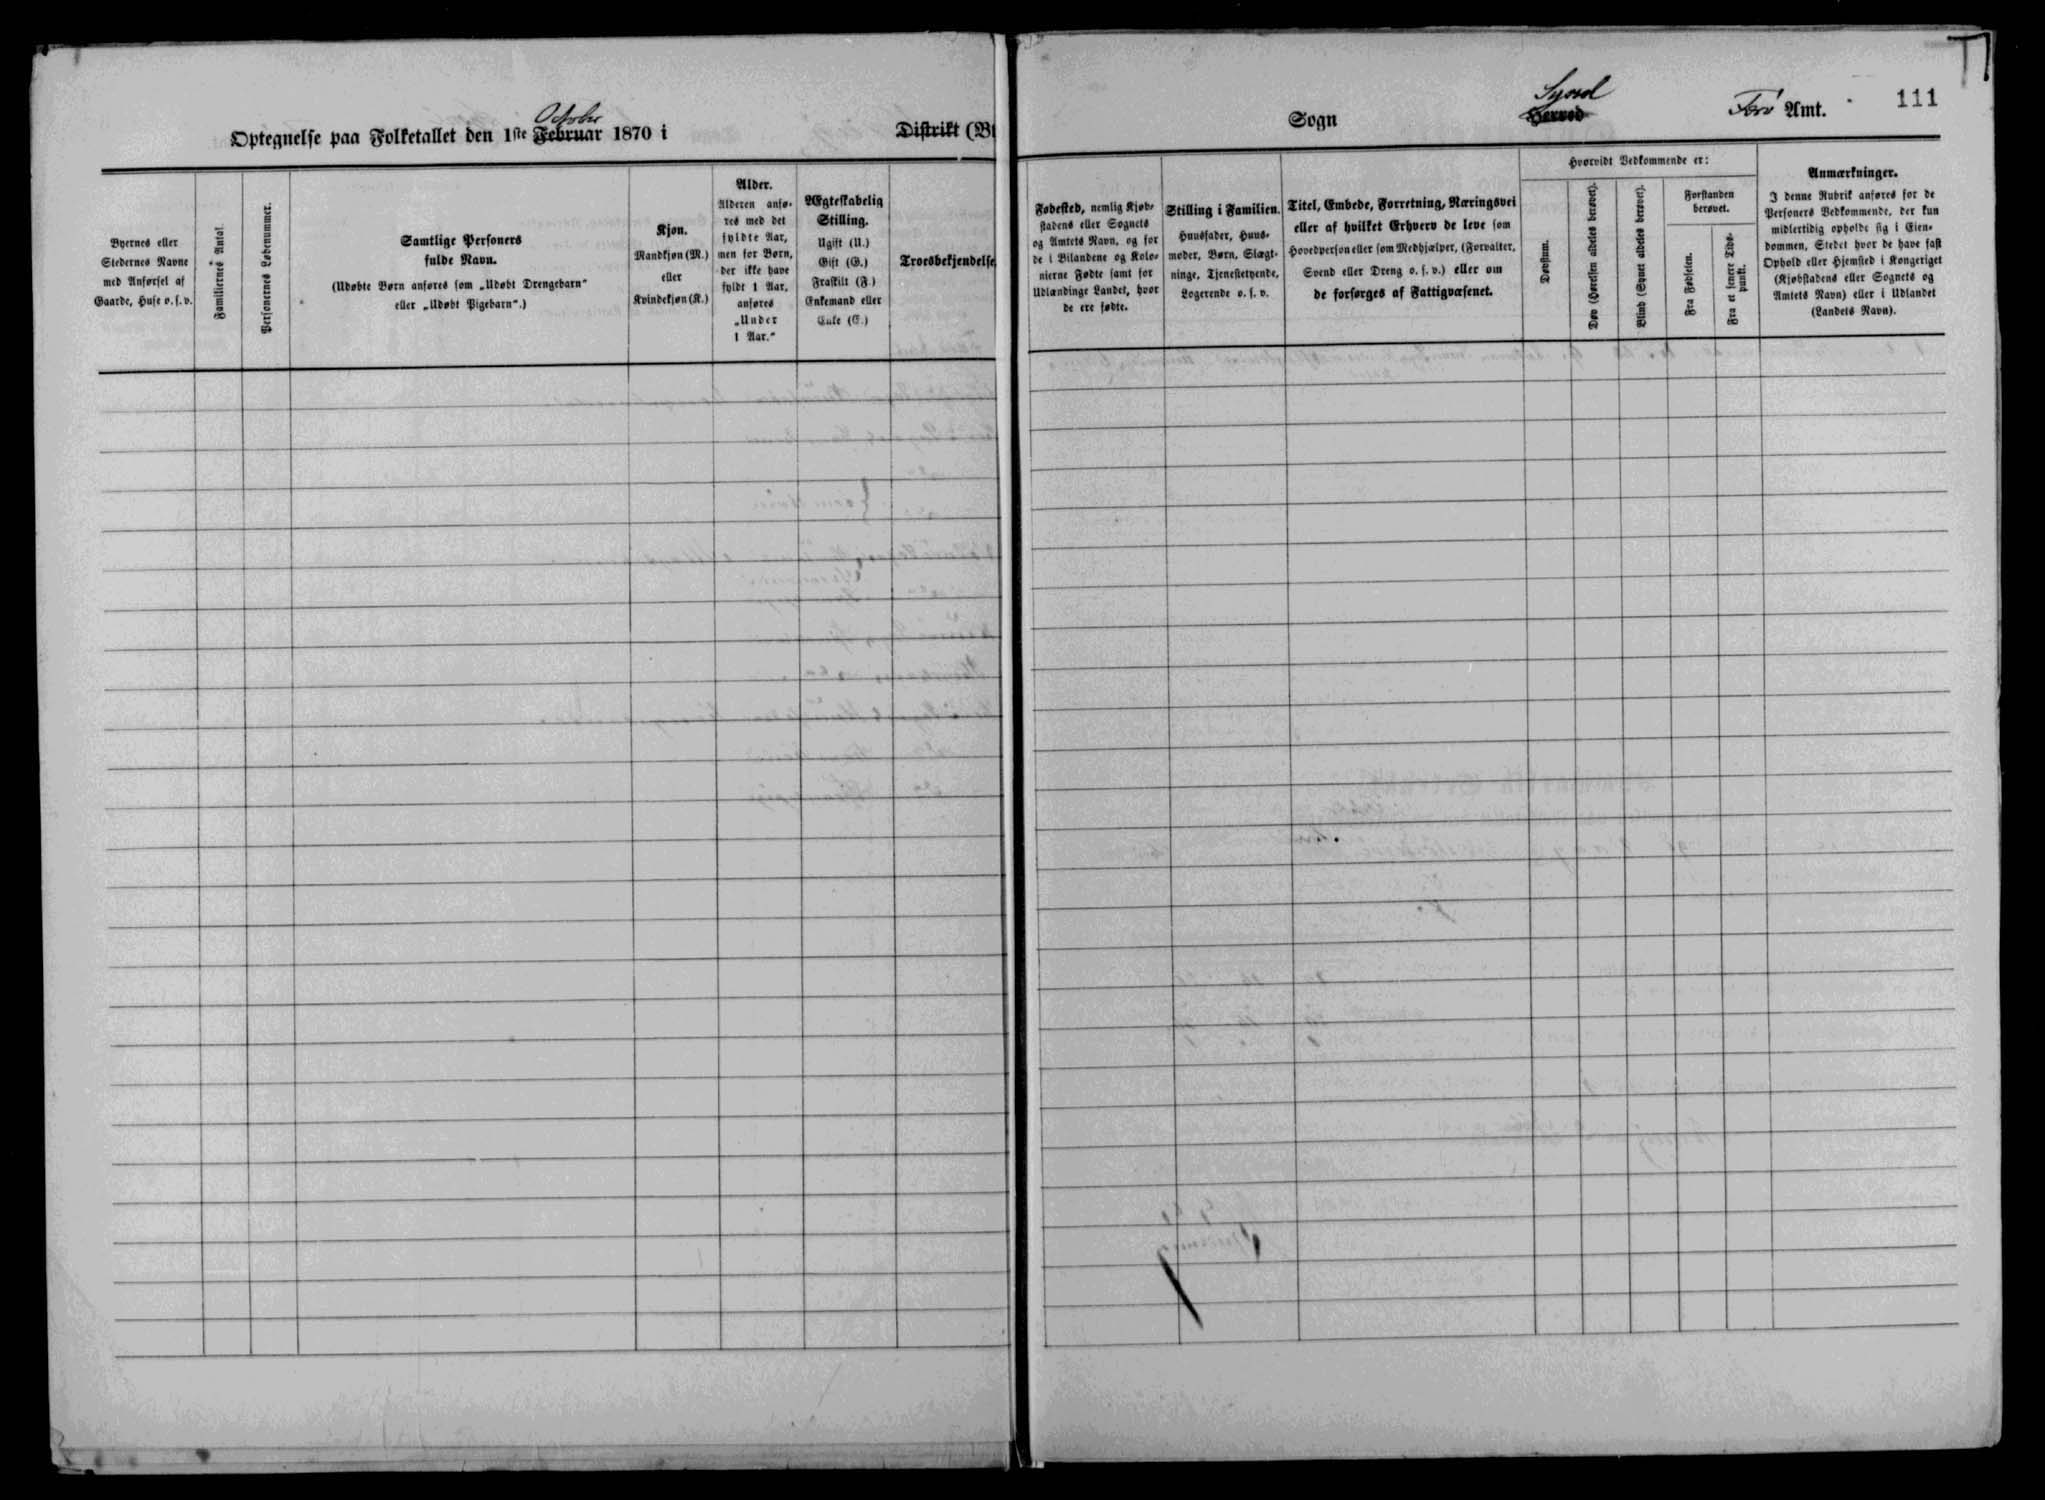 Octobr
Optegnelse paa Folketallet den 1ste Februar 1870 i
Distrikt (B
Byernes eller
Stedernes Navne
med Anførsel af
Gaarde, Huse o. s. v.
Familiernes Antal.
Personernes Løbenummer.
Samtlige Personers
fulde Navn.
(Udøbte Børn anføres som „Udøbt Drengebarn"
eller „Udøbt Pigebarn".)
Kjøn.
Mandkjøn (M.)
eller
Kvindekjøn (K.)
Alder.
Alderen anfø-
res med det
fyldte Aar,
men for Børn,
der ikke have
fyldt 1 Aar,
anføres
„Under
1 Aar."
Ægteskabelig
Stilling.
Ugift (U.)
Gift (G.)
Fraskilt (F.)
Enkemand eller
Enke (E.)
Troesbekjendelse
Sogn
Syssel
Herred
Færø Amt.
111
Fødested, nemlig Kjøb-
stadens eller Sognets
og Amtets Navn, og for
de i Bilandene og Kolo-
nierne Fødte samt for
Udlændinge Landet, hvor
de ere fødte.
Stilling i Familien.
Huusfader, Huus-
moder, Børn, Slægt-
ninge, Tjenestetyende,
Logerende o. s. v.
Titel, Embede, Forretning, Næringsvei
eller af hvilket Erhverv de leve som
Hovedperson eller som Medhjælper, (Forvalter,
Svend eller Dreng o. s. v.) eller om
de forsørges af Fattigvæsenet.
Hvorvidt Vedkommende er:
Døvstum.
Døv (Hørelsen aldeles berøvet).
Blind (Synet aldeles berøvet).
Forstanden
berøvet.
Fra Fødselen.
Fra et senere Tids-
punkt.
Anmærkninger.
I denne Rubrik anføres for de
Personers Vedkommende, der kun
midlertidig opholde sig i Eien-
dommen, Stedet hvor de have fast
Ophold eller Hjemsted i Kongeriget
(Kjøbstadens eller Sognets og
Amtets Navn) eller i Udlandet
(Landets Navn).